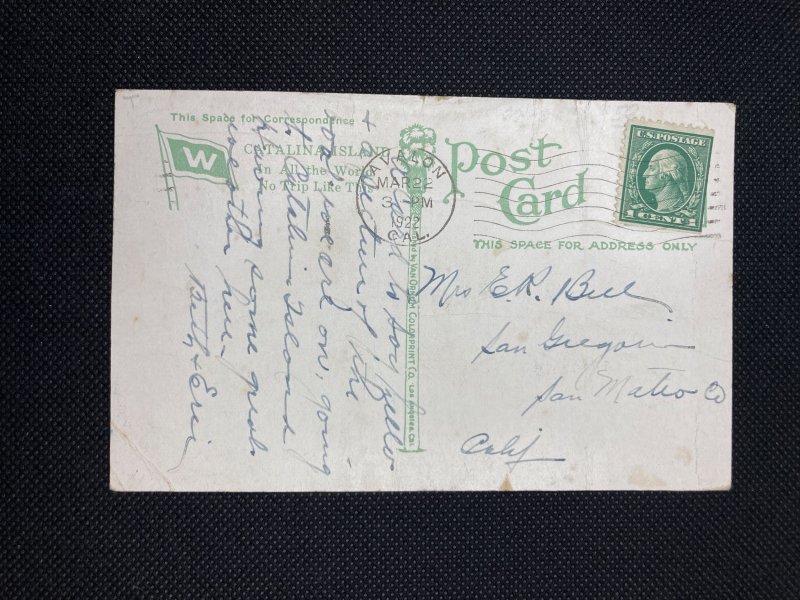 This Space for Correspondence
W
CATALINA ISLAND
In All the World
No Trip Like This
Post
Card
THIS SPACE FOR ADDRESS ONLY
AVALON
MAR 22
3 PM
1922
CAL.
U.S. POSTAGE
1 CENT 1
VAN ORNUM COLORPRINT CO. LOS ANGELES, CAL.
Mrs E. R. Bell
San Gregorio
San Mateo Co
Calif
A card to say hello
+ a picture of the
boat we are on, going
to Catalina Island
having some great
weather here.
Betty & Eric